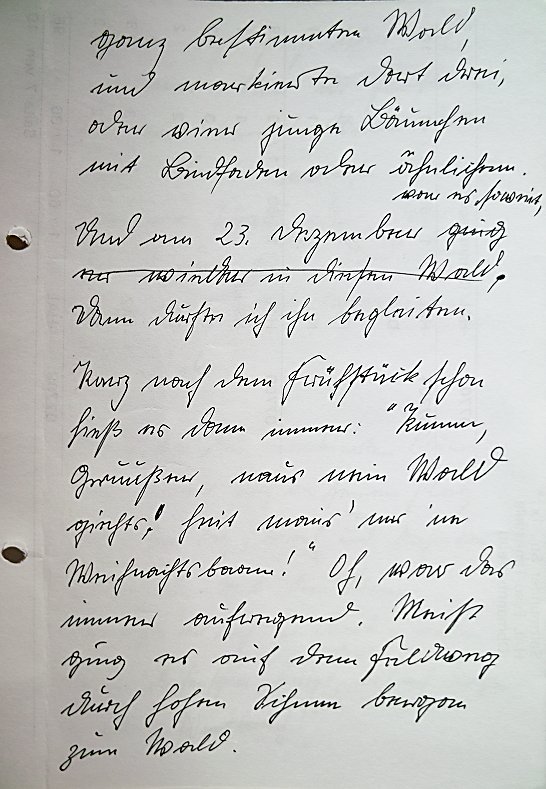 ganz bestimmten Wald,
und markierte dort drei,
oder vier junge Bäumchen
mit Bindfaden oder ähnlichem.
war es soweit,
Und am 23. Dezember ging
er wieder in diesen Wald,
dann durfte ich ihn begleiten.
Kurz nach dem Frühstück schon
hieß es dann immer: "Kumm,
Grußer, naus nein Wald
giehts! Heit mais' mer 'nn
Weihnachtsbaam!" Oh, war das
immer aufregend. Meist
ging es auf dem Feldweg
durch hohen Schnee bergan
zum Wald.